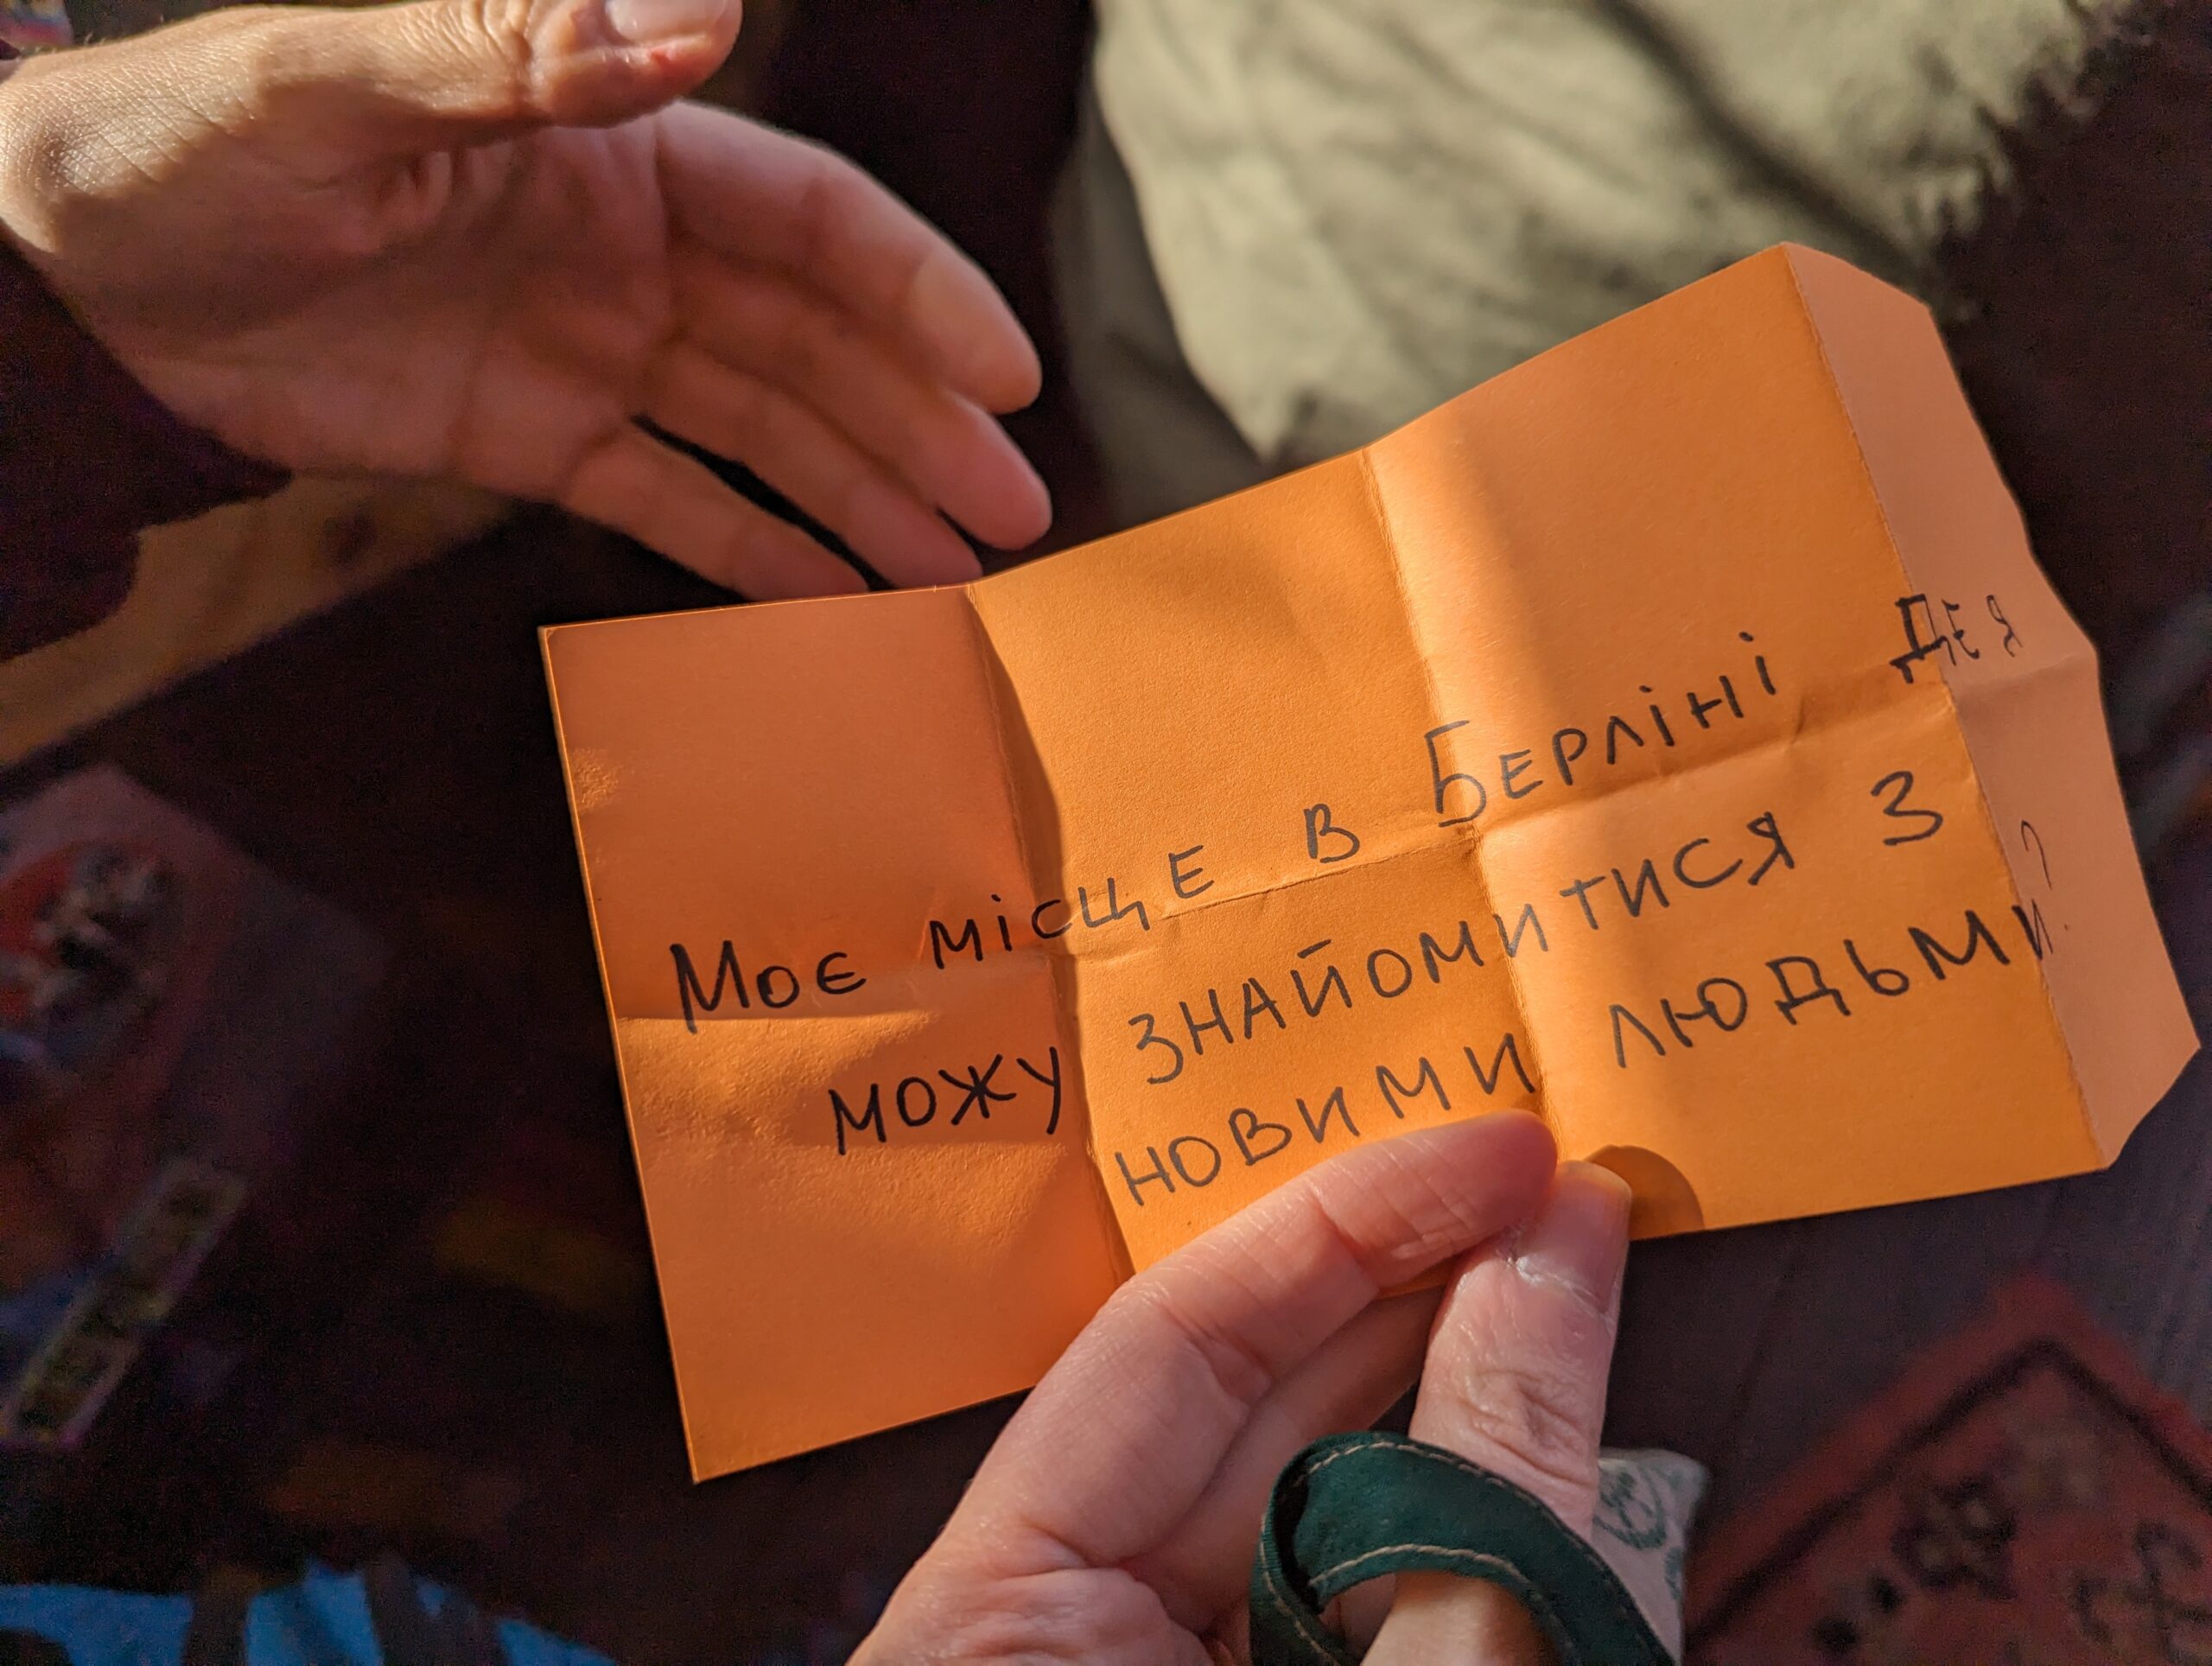 Моє місце в Берліні де я
можу знайомитися з
новими людьми?